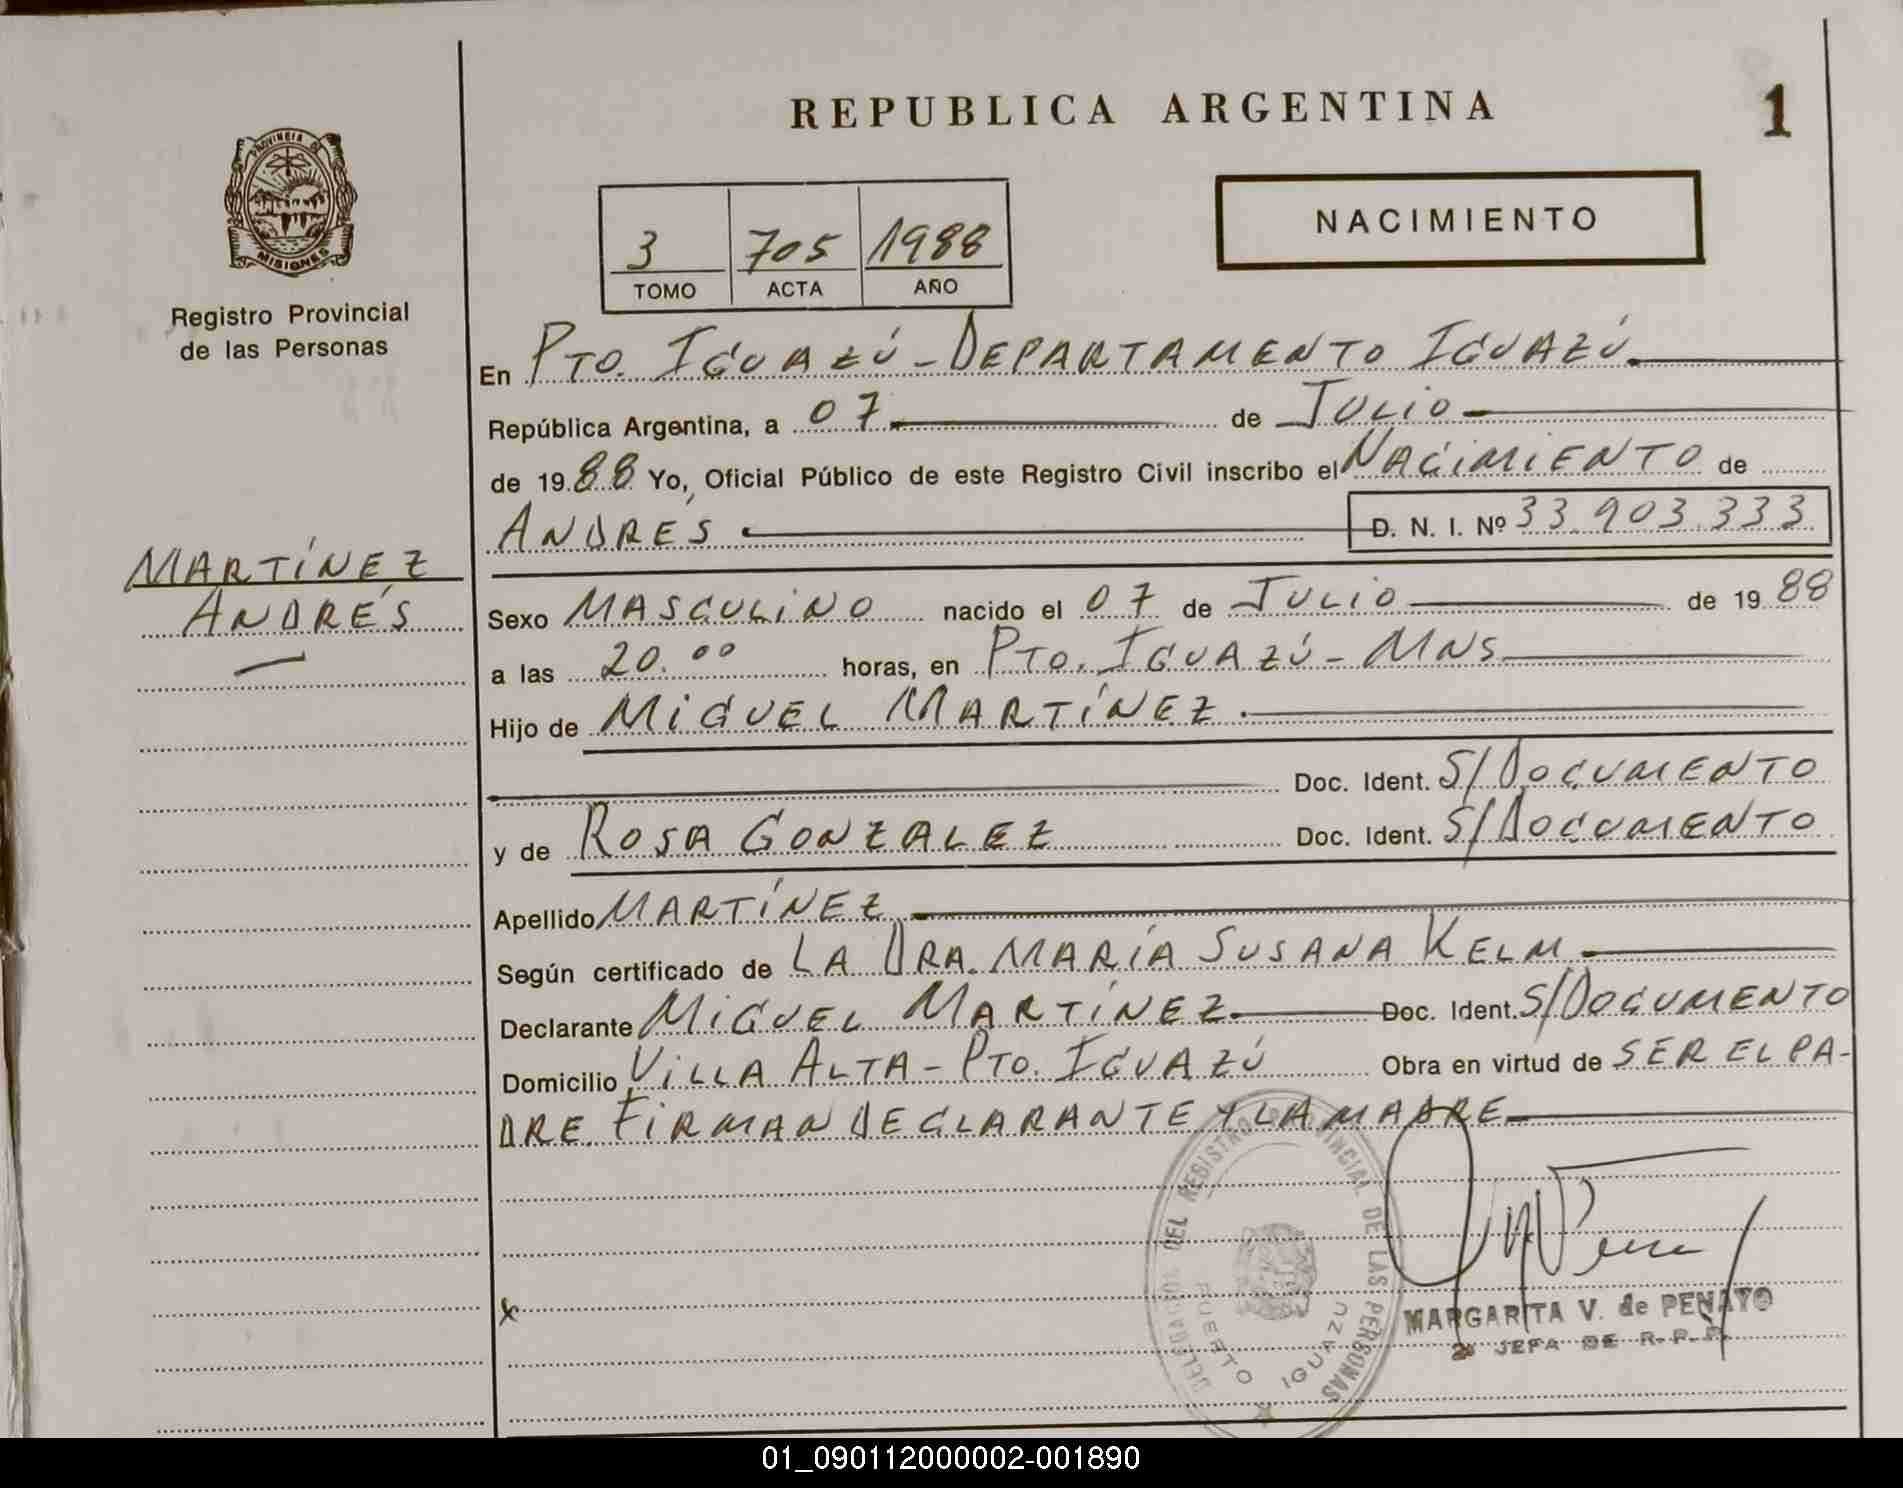 REPUBLICA ARGENTINA
1
PROVINCIA DE
MISIONES
Registro Provincial
de las Personas
3 705 1988
TOMO ACTA AÑO
NACIMIENTO
En PTO. IGUAZÚ - DEPARTAMENTO IGUAZÚ
República Argentina, a 07 de JULIO
de 1988 Yo, Oficial Público de este Registro Civil inscribo el NACIMIENTO de
ANDRÉS D. N. I. Nº 33.903.333
MARTÍNEZ
ANDRÉS
Sexo MASCULINO nacido el 07 de JULIO de 1988
a las 20.00 horas, en PTO. IGUAZÚ - MNS
Hijo de MIGUEL MARTÍNEZ.
Doc. Ident. S/DOCUMENTO
y de ROSA GONZALEZ Doc. Ident. S/DOCUMENTO
Apellido MARTÍNEZ
Según certificado de LA DRA. MARÍA SUSANA KELM
Declarante MIGUEL MARTÍNEZ Doc. Ident. S/DOCUMENTO
Domicilio VILLA ALTA - PTO. IGUAZÚ Obra en virtud de SER EL PA-
DRE. FIRMAN DECLARANTE Y LA MADRE
x
DELEGADO DEL REGISTRO PROVINCIAL DE LAS PERSONAS
PUERTO IGUAZU
MARGARITA V. de PENAYO
JEFA DE R. P. P.
01_090112000002-001890